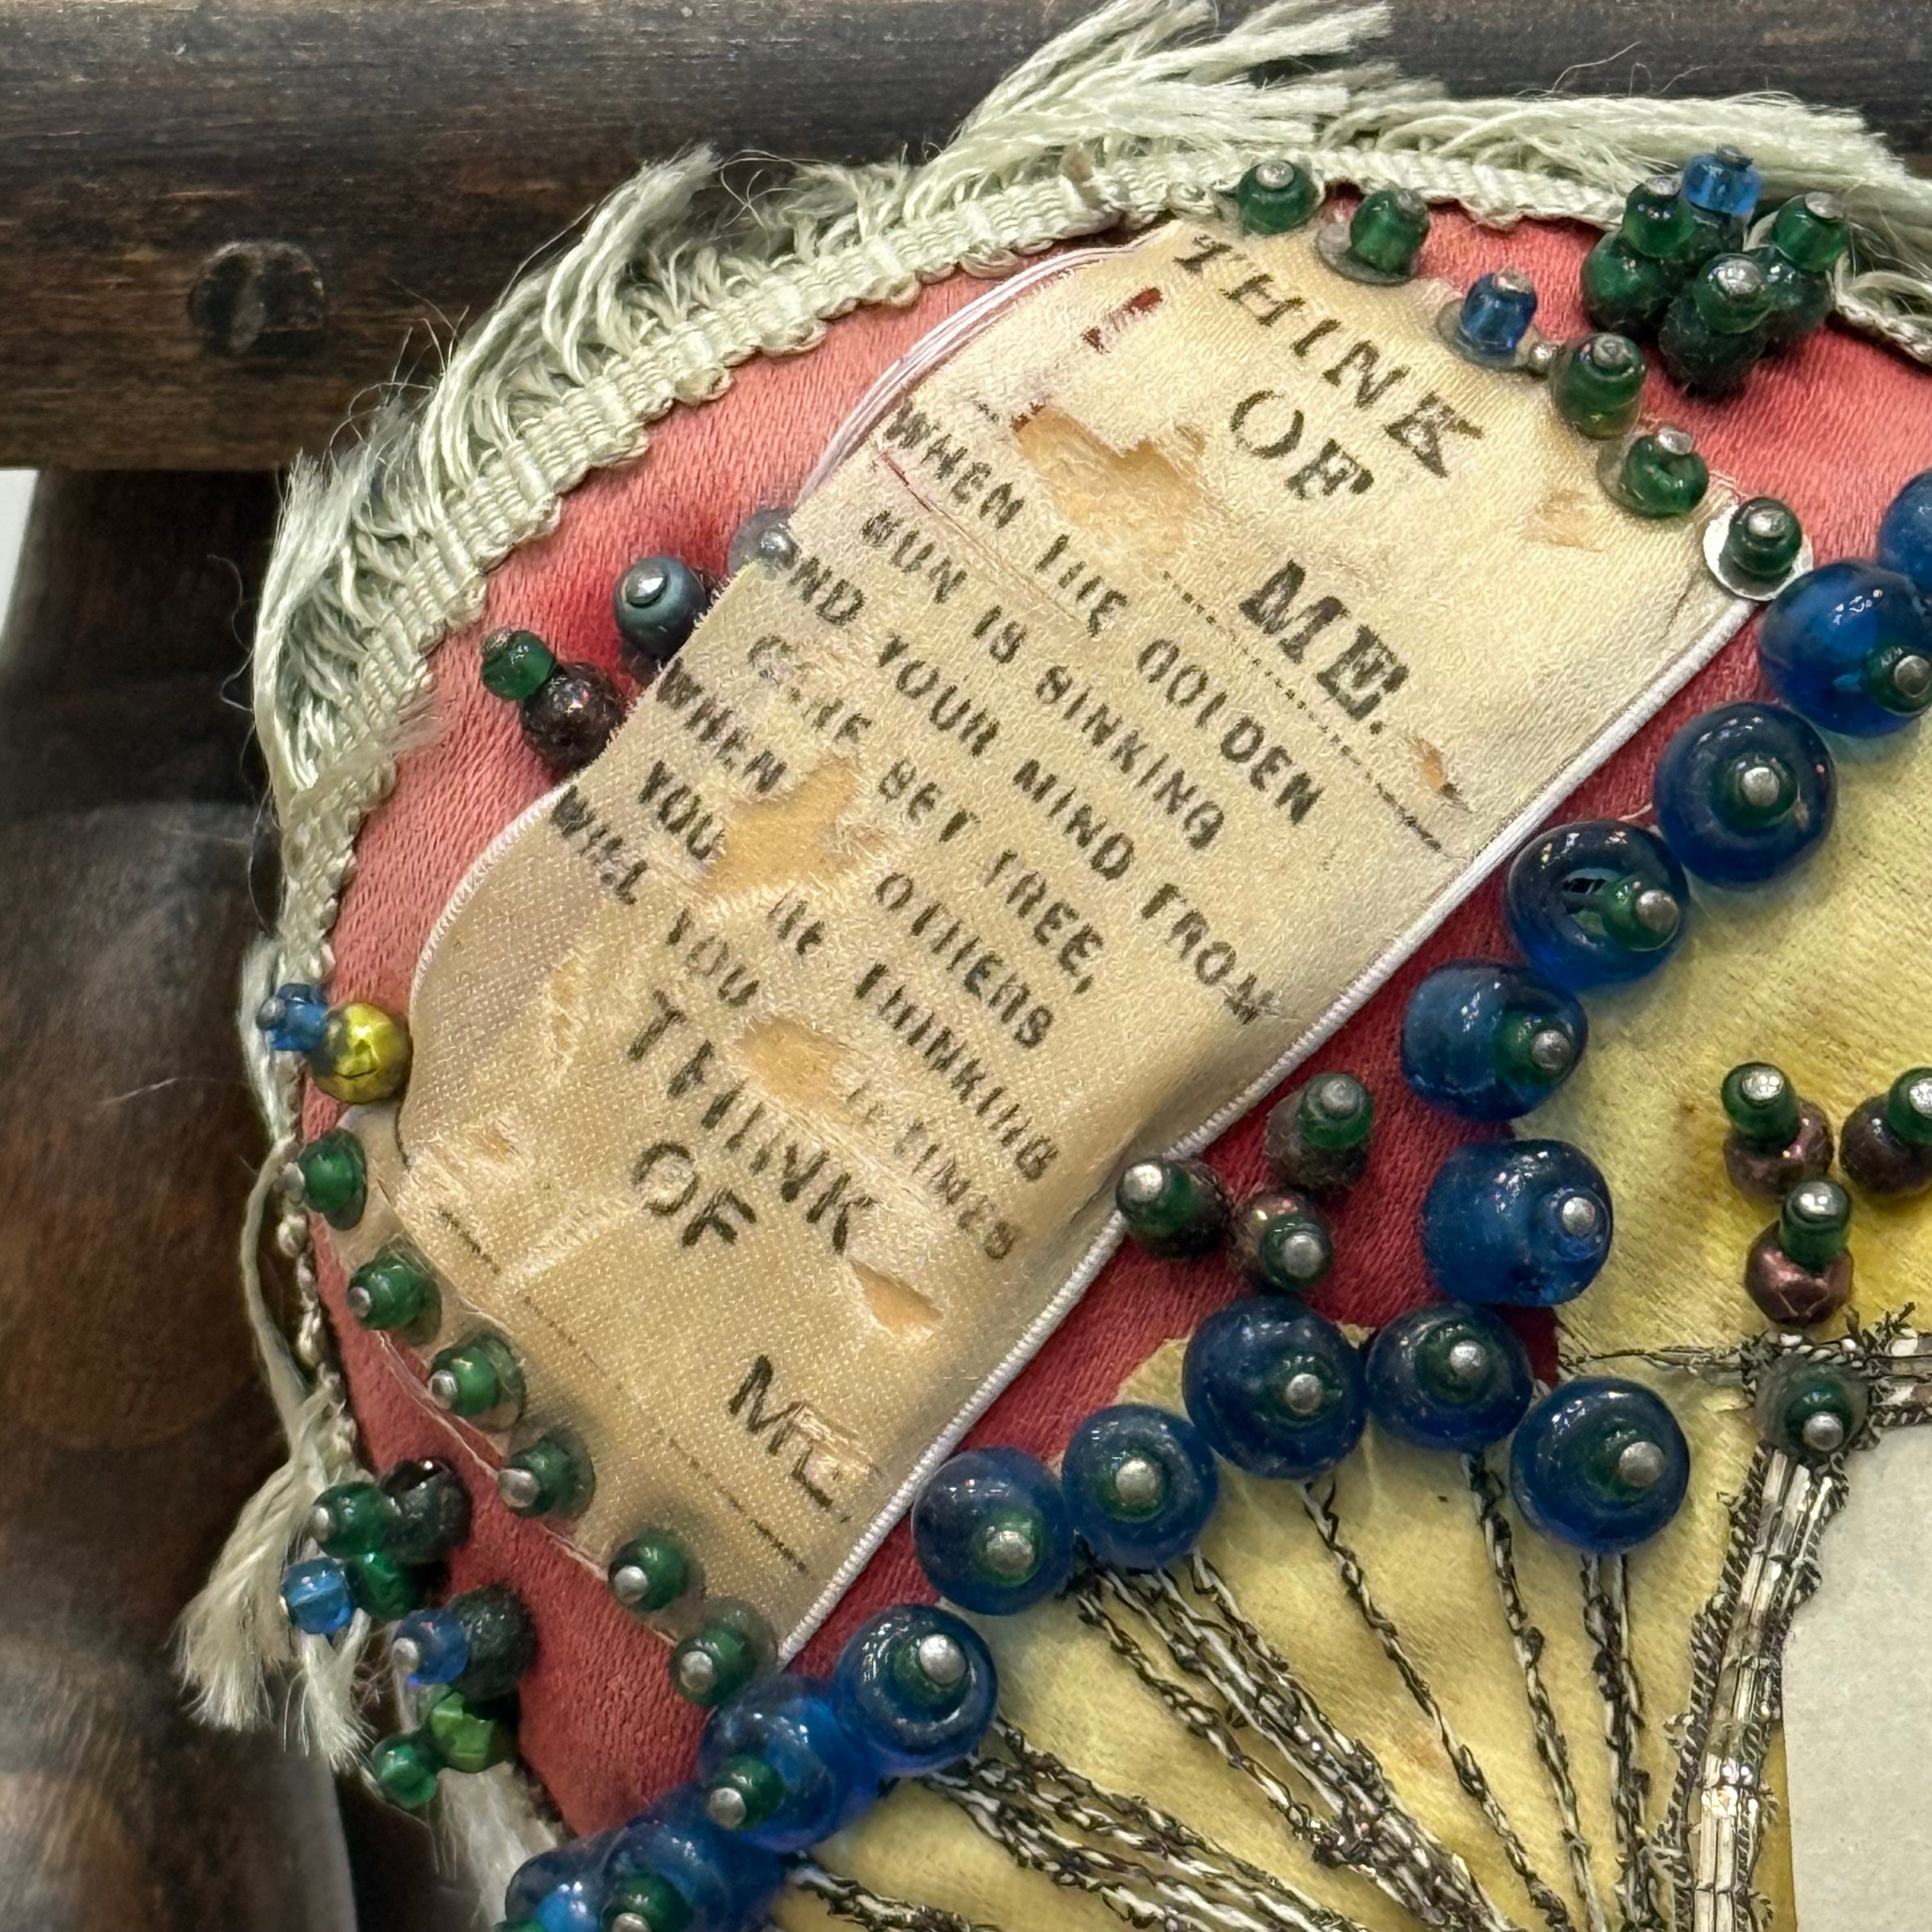 THINK
OF
ME.
WHEN THE GOLDEN
SUN IS SINKING
AND YOUR MIND FROM
CARE SET FREE,
WHEN OTHERS
YOU THINKING
WILL YOU SOMETIMES
THINK
OF
ME